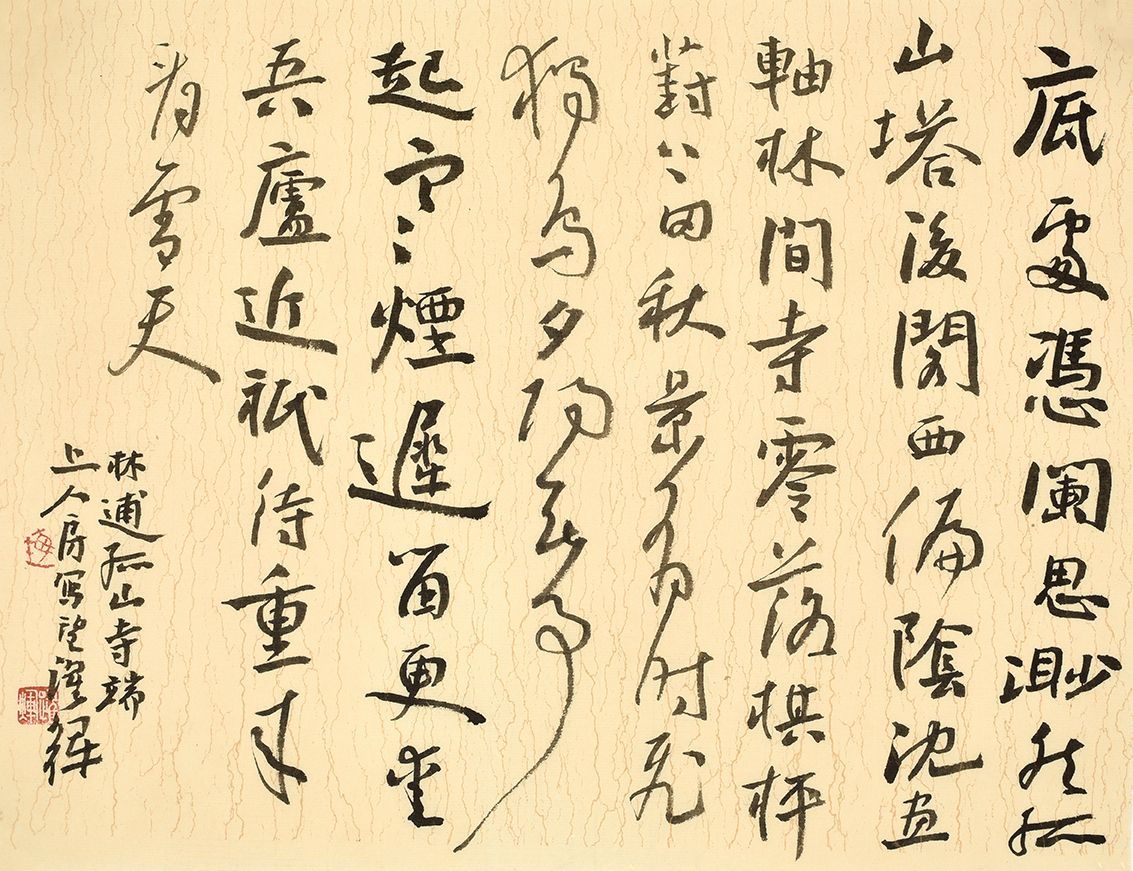 底處憑闌思渺然孤
山塔後閣西偏陰沈畫
軸林間寺零落棋枰
葑上田秋景有時飛
獨鳥夕陽無事
起寒煙遲留更愛
吾廬近祇待重来
看雪天
林逋孤山寺端
上人房写望